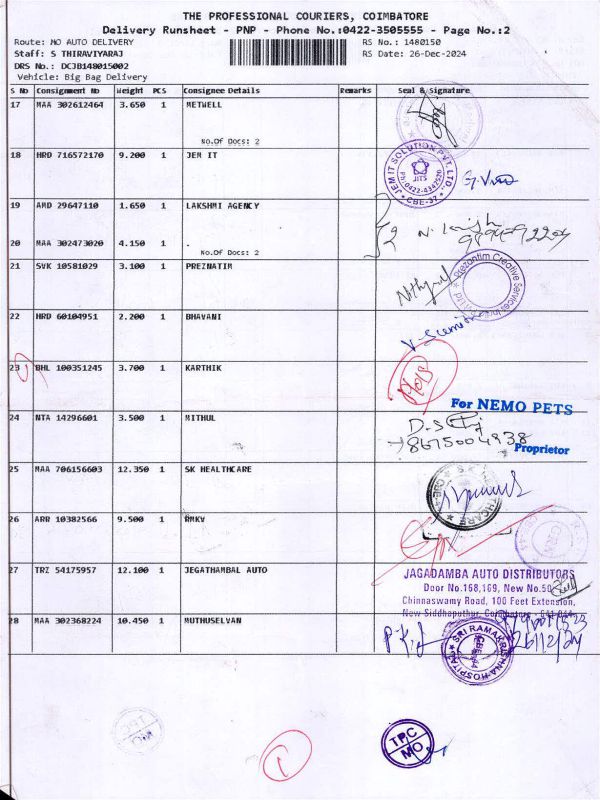 THE PROFESSIONAL COURIERS, COIMBATORE
Delivery Runsheet - PNP - Phone No.:0422-3505555 - Page No.:2
Route: MO AUTO DELIVERY
RS No.: 1480150
Staff: S THIRAVIYARAJ
RS Date: 26-Dec-2024
DRS No.: DCJB148015002
Vehicle: Big Bag Delivery
S No Consignment No Weight PCS Consignee Details Remarks Seal & Signature
17 MAA 302612464 3.650 1 METWELL
No.Of Docs: 2
18 HRD 716572170 9.200 1 JEM IT
JEM IT SOLUTION PVT. LTD.
JITS
Ph: 0422-4347520
CBE-37
19 AMD 29647110 1.650 1 LAKSHMI AGENCY
20 MAA 302473020 4.150 1 .
No.Of Docs: 2
21 SVK 10581029 3.100 1 PREZNATIM
Prezantim Creative Services India
22 HRD 60104951 2.200 1 BHAVANI
23 BHL 100351245 3.700 1 KARTHIK
For NEMO PETS
24 NTA 14296601 3.500 1 MITHUL
8675004938
Proprietor
25 MAA 706156603 12.350 1 SK HEALTHCARE
26 ARR 10382566 9.500 1 RMKV
27 TRZ 54175957 12.100 1 JEGATHAMBAL AUTO
JAGADAMBA AUTO DISTRIBUTORS
Door No.168,169, New No.50
Chinnaswamy Road, 100 Feet Extension,
New Siddhaputhur, Coimbatore - 641 044
28 MAA 302368224 10.450 1 MUTHUSELVAN
26/12/24
SRI RAMAKRISHNA HOSPITAL
CBE-44
TPC
MO
TPC
MO
1